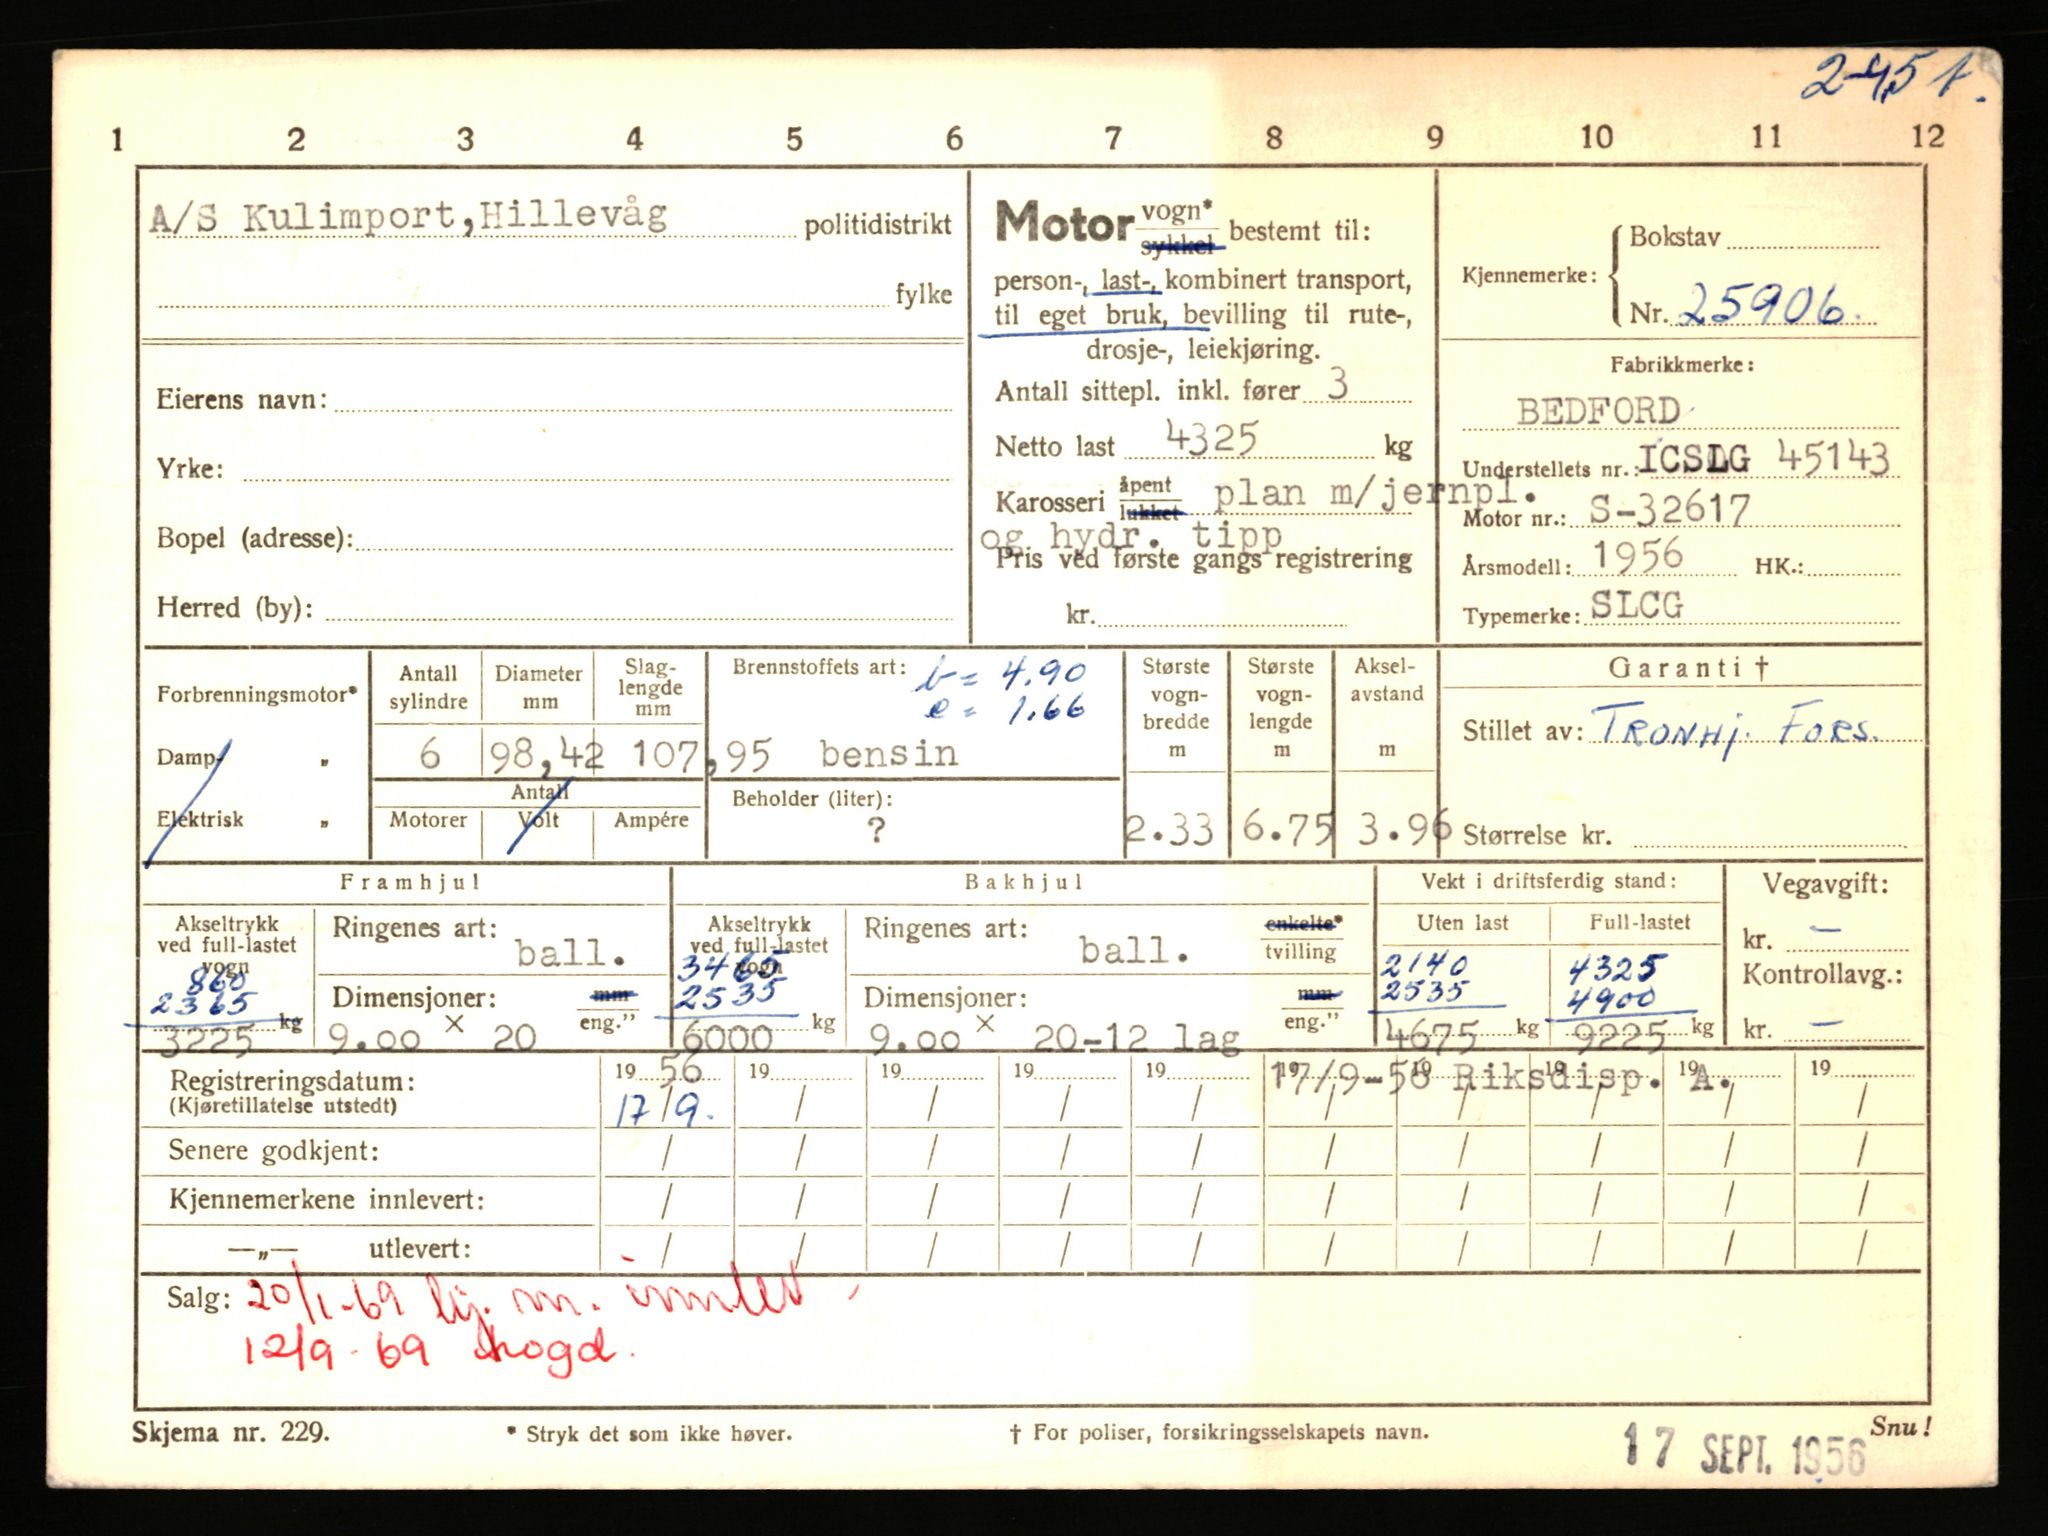 1 2 3 4 5 6 7 8 9 10 11 12
A/S Kulimport, Hillevåg politidistrikt
fylke
Eierens navn:
Yrke:
Bopel (adresse):
Herred (by):
Motor vogn* sykkel bestemt til:
person-, last-, kombinert transport,
til eget bruk, bevilling til rute-,
drosje-, leiekjøring.
Antall sittepl. inkl. fører 3
Netto last 4325 kg
Karosseri åpent lukket plan m/jernpl.
og hydr. tipp
Pris ved første gangs registrering
kr.
Kjennemerke: Bokstav
Nr. 25906.
Fabrikkmerke:
BEDFORD
Understellets nr.: ICSLG 45143
Motor nr.: S-32617
Årsmodell: 1956 HK.:
Typemerke: SLCG
Forbrenningsmotor*
Damp- „
Elektrisk „
Antall sylindre
Diameter mm
Slag-lengde mm
6 98,42 107,95
Antall
Motorer Volt Ampére
Brennstoffets art: b = 4.90
e = 1.66
bensin
Beholder (liter):
?
Største vogn-bredde m
2.33
Største vogn-lengde m
6.75
Aksel-avstand m
3.96
Garanti †
Stillet av: TRONHJ. FORS.
Størrelse kr.
Framhjul
Akseltrykk ved full-lastet vogn
860
2365
3225 kg
Ringenes art: ball.
Dimensjoner: mm eng."
9.00 × 20
Bakhjul
Akseltrykk ved full-lastet vogn
3465
2535
6000 kg
Ringenes art: ball. enkelte* tvilling
Dimensjoner: mm eng."
9.00 × 20-12 lag
Vekt i driftsferdig stand:
Uten last
2140
2535
4675 kg
Full-lastet
4325
4900
9225 kg
Vegavgift:
kr. —
Kontrollavg.:
kr. —
Registreringsdatum: 19 56 19 19 19 19 19 19 19 19 19
17/9-56 Riksdisp. A.
(Kjøretillatelse utstedt) 17/9.
Senere godkjent:
Kjennemerkene innlevert:
—„— utlevert:
Salg: 20/1-69 kj. m. innlev
12/9-69 hogd.
Skjema nr. 229.
* Stryk det som ikke høver.
† For poliser, forsikringsselskapets navn.
Snu!
17 SEPT. 1956